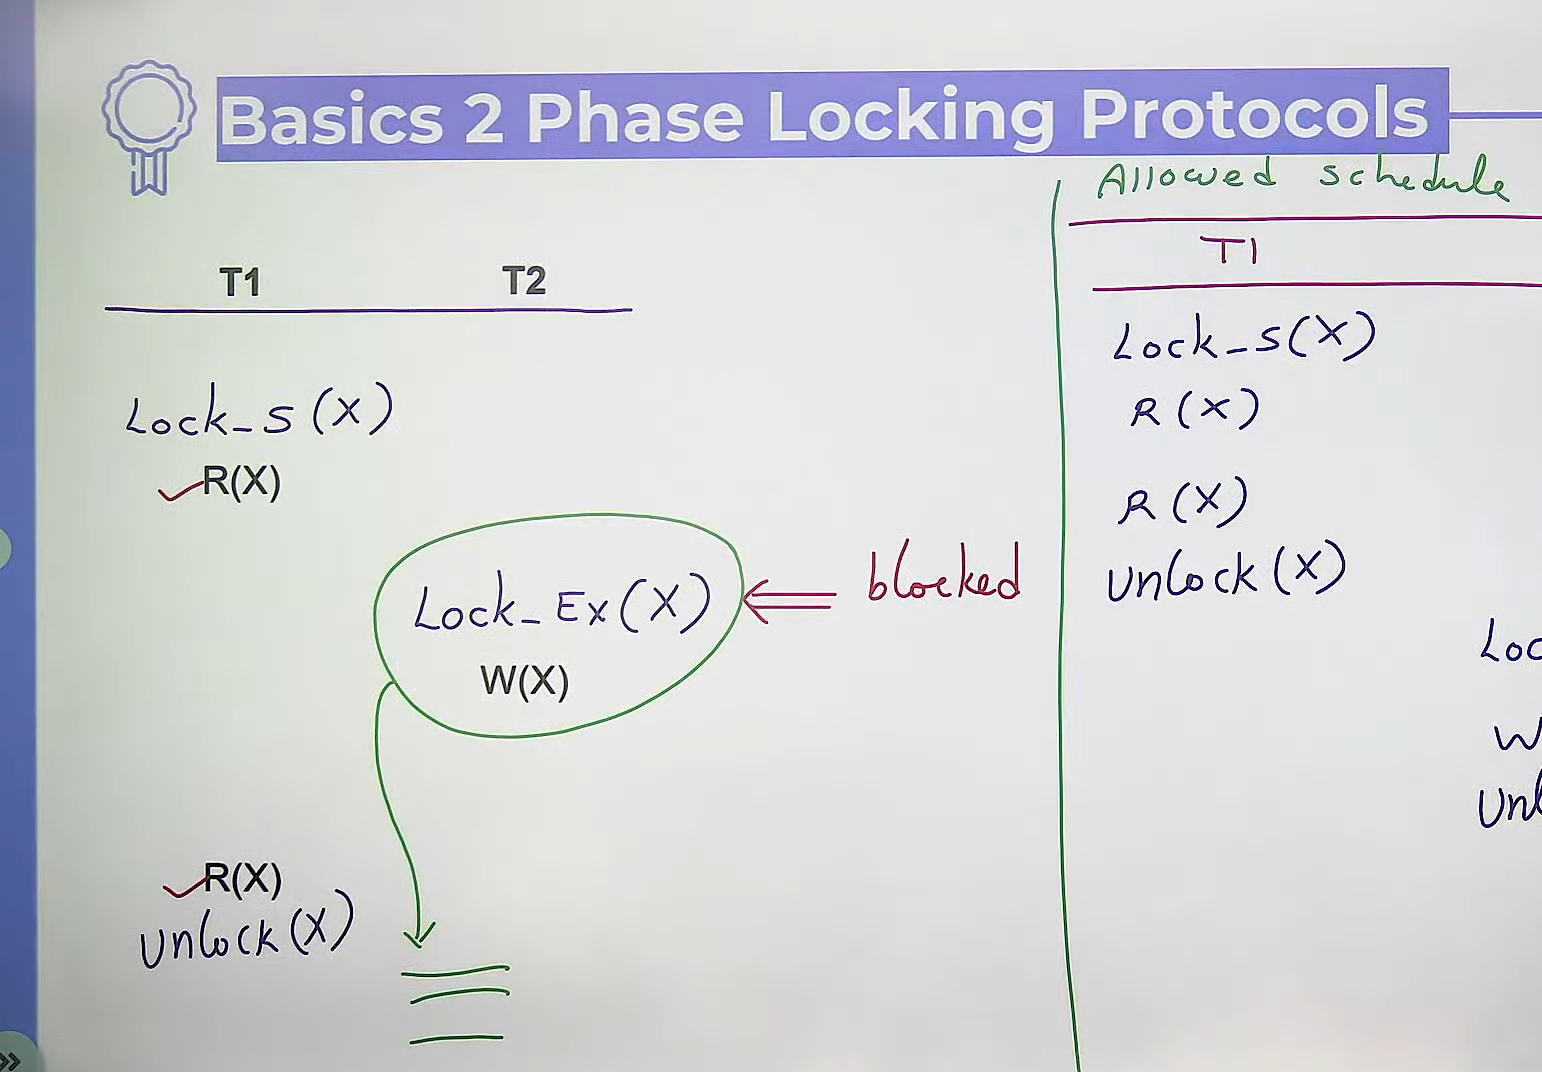 Basics 2 Phase Locking Protocols
T1 T2
Lock_S(X)
R(X)
Lock_Ex(X)
W(X)
blocked
R(X)
Unlock(X)
Allowed schedule
T1
Lock_S(X)
R(X)
R(X)
Unlock(X)
Loc
W
Unl